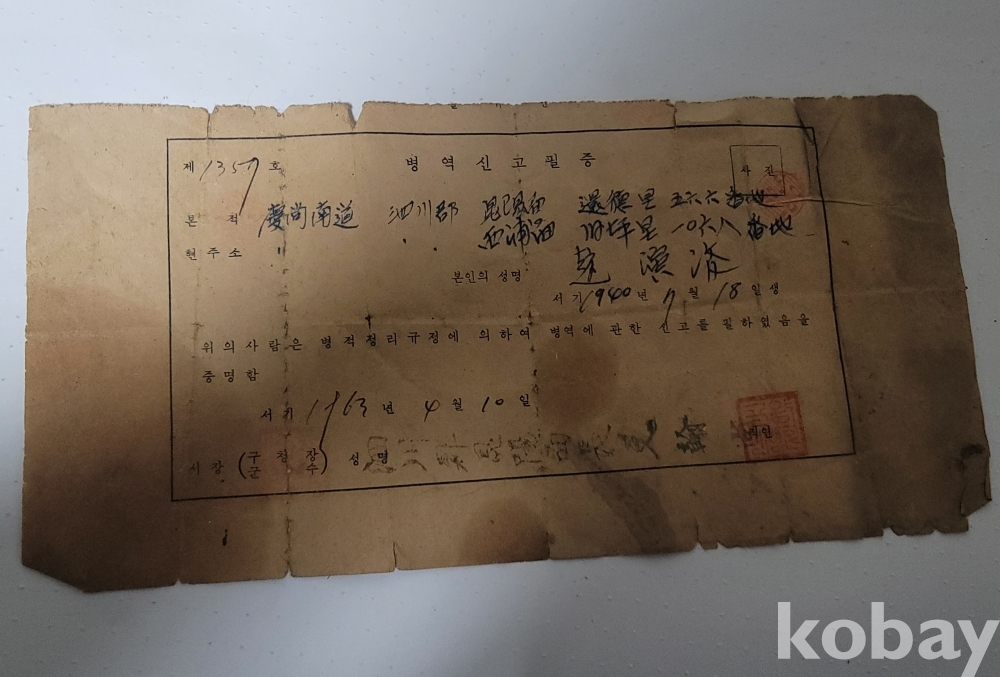 제 1357 호 병역신고필증
사진
본적 慶尚南道 泗川郡 昆陽面 還德里 五六六番地
현주소 〃 〃 西浦面 旧坪里 一〇六八番地
본인의 성명 趙 演 済
서기 1940 년 7 월 18 일생
위의 사람은 병적정리규정에 의하여 병역에 관한 신고를 필하였음을
증명함
서기 1963 년 4 월 10 일
시장 (구청장 군수) 성명 泗川郡昆陽面長
직인
kobay